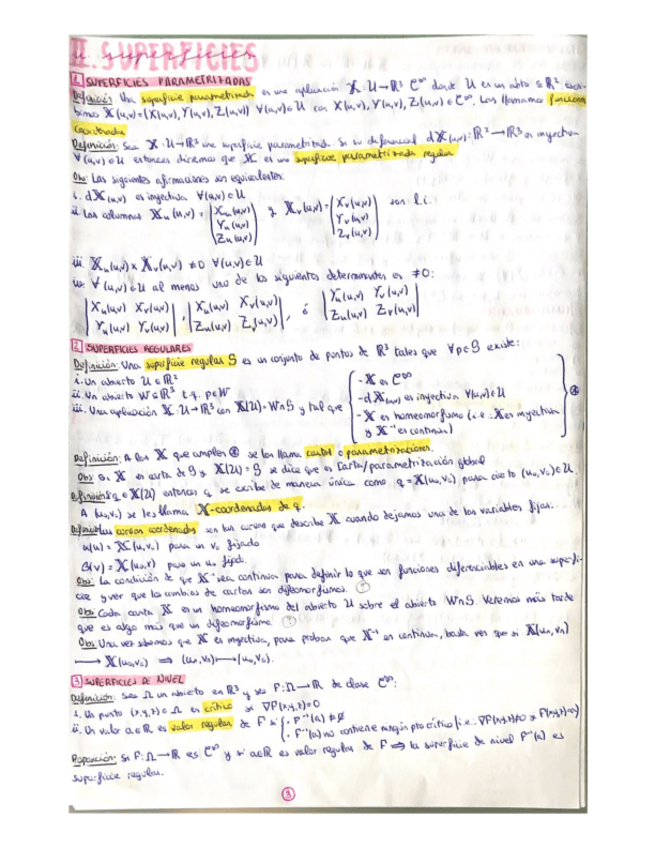 II. SUPERFICIES
1 SUPERFICIES PARAMETRIZADAS
Definición: Una superficie parametrizada es una aplicación X: U→R³ C^∞ donde U es un abto ⊆ R², escri-
bimos X(u,v) = (X(u,v), Y(u,v), Z(u,v)) ∀(u,v)∈U con X(u,v), Y(u,v), Z(u,v) ∈ C^∞. Las llamamos funciones
coordenadas
Definición: Sea X: U→R³ una superficie parametrizada. Si su diferencial dX(u,v): R²→R³ es inyectiva
∀(u,v)∈U entonces diremos que X es una superficie parametrizada regular
Obs: Las siguientes afirmaciones son equivalentes:
i. dX(u,v) es inyectiva ∀(u,v)∈U
ii. Las columnas Xu(u,v) = (Xu(u,v) Yu(u,v) Zu(u,v)) y Xv(u,v) = (Xv(u,v) Yv(u,v) Zv(u,v)) son l.i.
iii. Xu(u,v) × Xv(u,v) ≠ 0 ∀(u,v)∈U
iv. ∀(u,v)∈U al menos uno de los siguientes determinantes es ≠0:
|Xu(u,v) Xv(u,v)| , |Xu(u,v) Xv(u,v)| , ó |Yu(u,v) Yv(u,v)|
|Yu(u,v) Yv(u,v)| |Zu(u,v) Zv(u,v)| |Zu(u,v) Zv(u,v)|
2 SUPERFICIES REGULARES
Definición: Una superficie regular S es un conjunto de puntos de R³ tales que ∀p∈S existe:
i. Un abierto U⊆R²
ii. Un abierto W⊆R³ t.q. p∈W
iii. Una aplicación X: U→R³ con X(U)=W∩S y tal que
- X es C^∞
- dX(u,v) es inyectiva ∀(u,v)∈U
- X es homeomorfismo (i.e.: X es inyectiva
y X⁻¹ es continua)
Definición: A las X que cumplen ⊛ se les llama cartas o parametrizaciones.
Obs: Si X es carta de S y X(U)=S se dice que es Carta/parametrización global
Definición: Si q∈X(U) entonces q se escribe de manera única como q=X(u₀,v₀) para cierto (u₀,v₀)∈U.
A (u₀,v₀) se les llama X-coordenadas de q.
Definición: Las curvas coordenadas son las curvas que describe X cuando dejamos una de las variables fijas.
α(u) = X(u,v₀) para un v₀ fijado
β(v) = X(u₀,v) para un u₀ fijado.
Obs: La condición de que X⁻¹ sea continua para definir lo que son funciones diferenciables en una superfi-
cie y ver que los cambios de cartas son difeomorfismos. ?
Obs: Cada carta X es un homeomorfismo del abierto U sobre el abierto W∩S. Veremos más tarde
que es algo más que un difeomorfismo. ?
Obs: Una vez sabemos que X es inyectiva, para probar que X⁻¹ es continua, basta ver que si X(un,vn)
→ X(u₀,v₀) ⇒ (un,vn)→(u₀,v₀).
3 SUPERFICIES DE NIVEL
Definición: Sea Ω un abierto en R³ y sea F: Ω→R de clase C^∞:
i. Un punto (x,y,z)∈Ω es crítico si ∇F(x,y,z)=0
ii. Un valor a∈R es valor regular de F si
· F⁻¹(a) ≠ ∅
· F⁻¹(a) no contiene ningún pto crítico
Proposición: Si F: Ω→R es C^∞ y si a∈R es valor regular de F ⇒ la superficie de nivel F⁻¹(a) es
superficie regular.
3